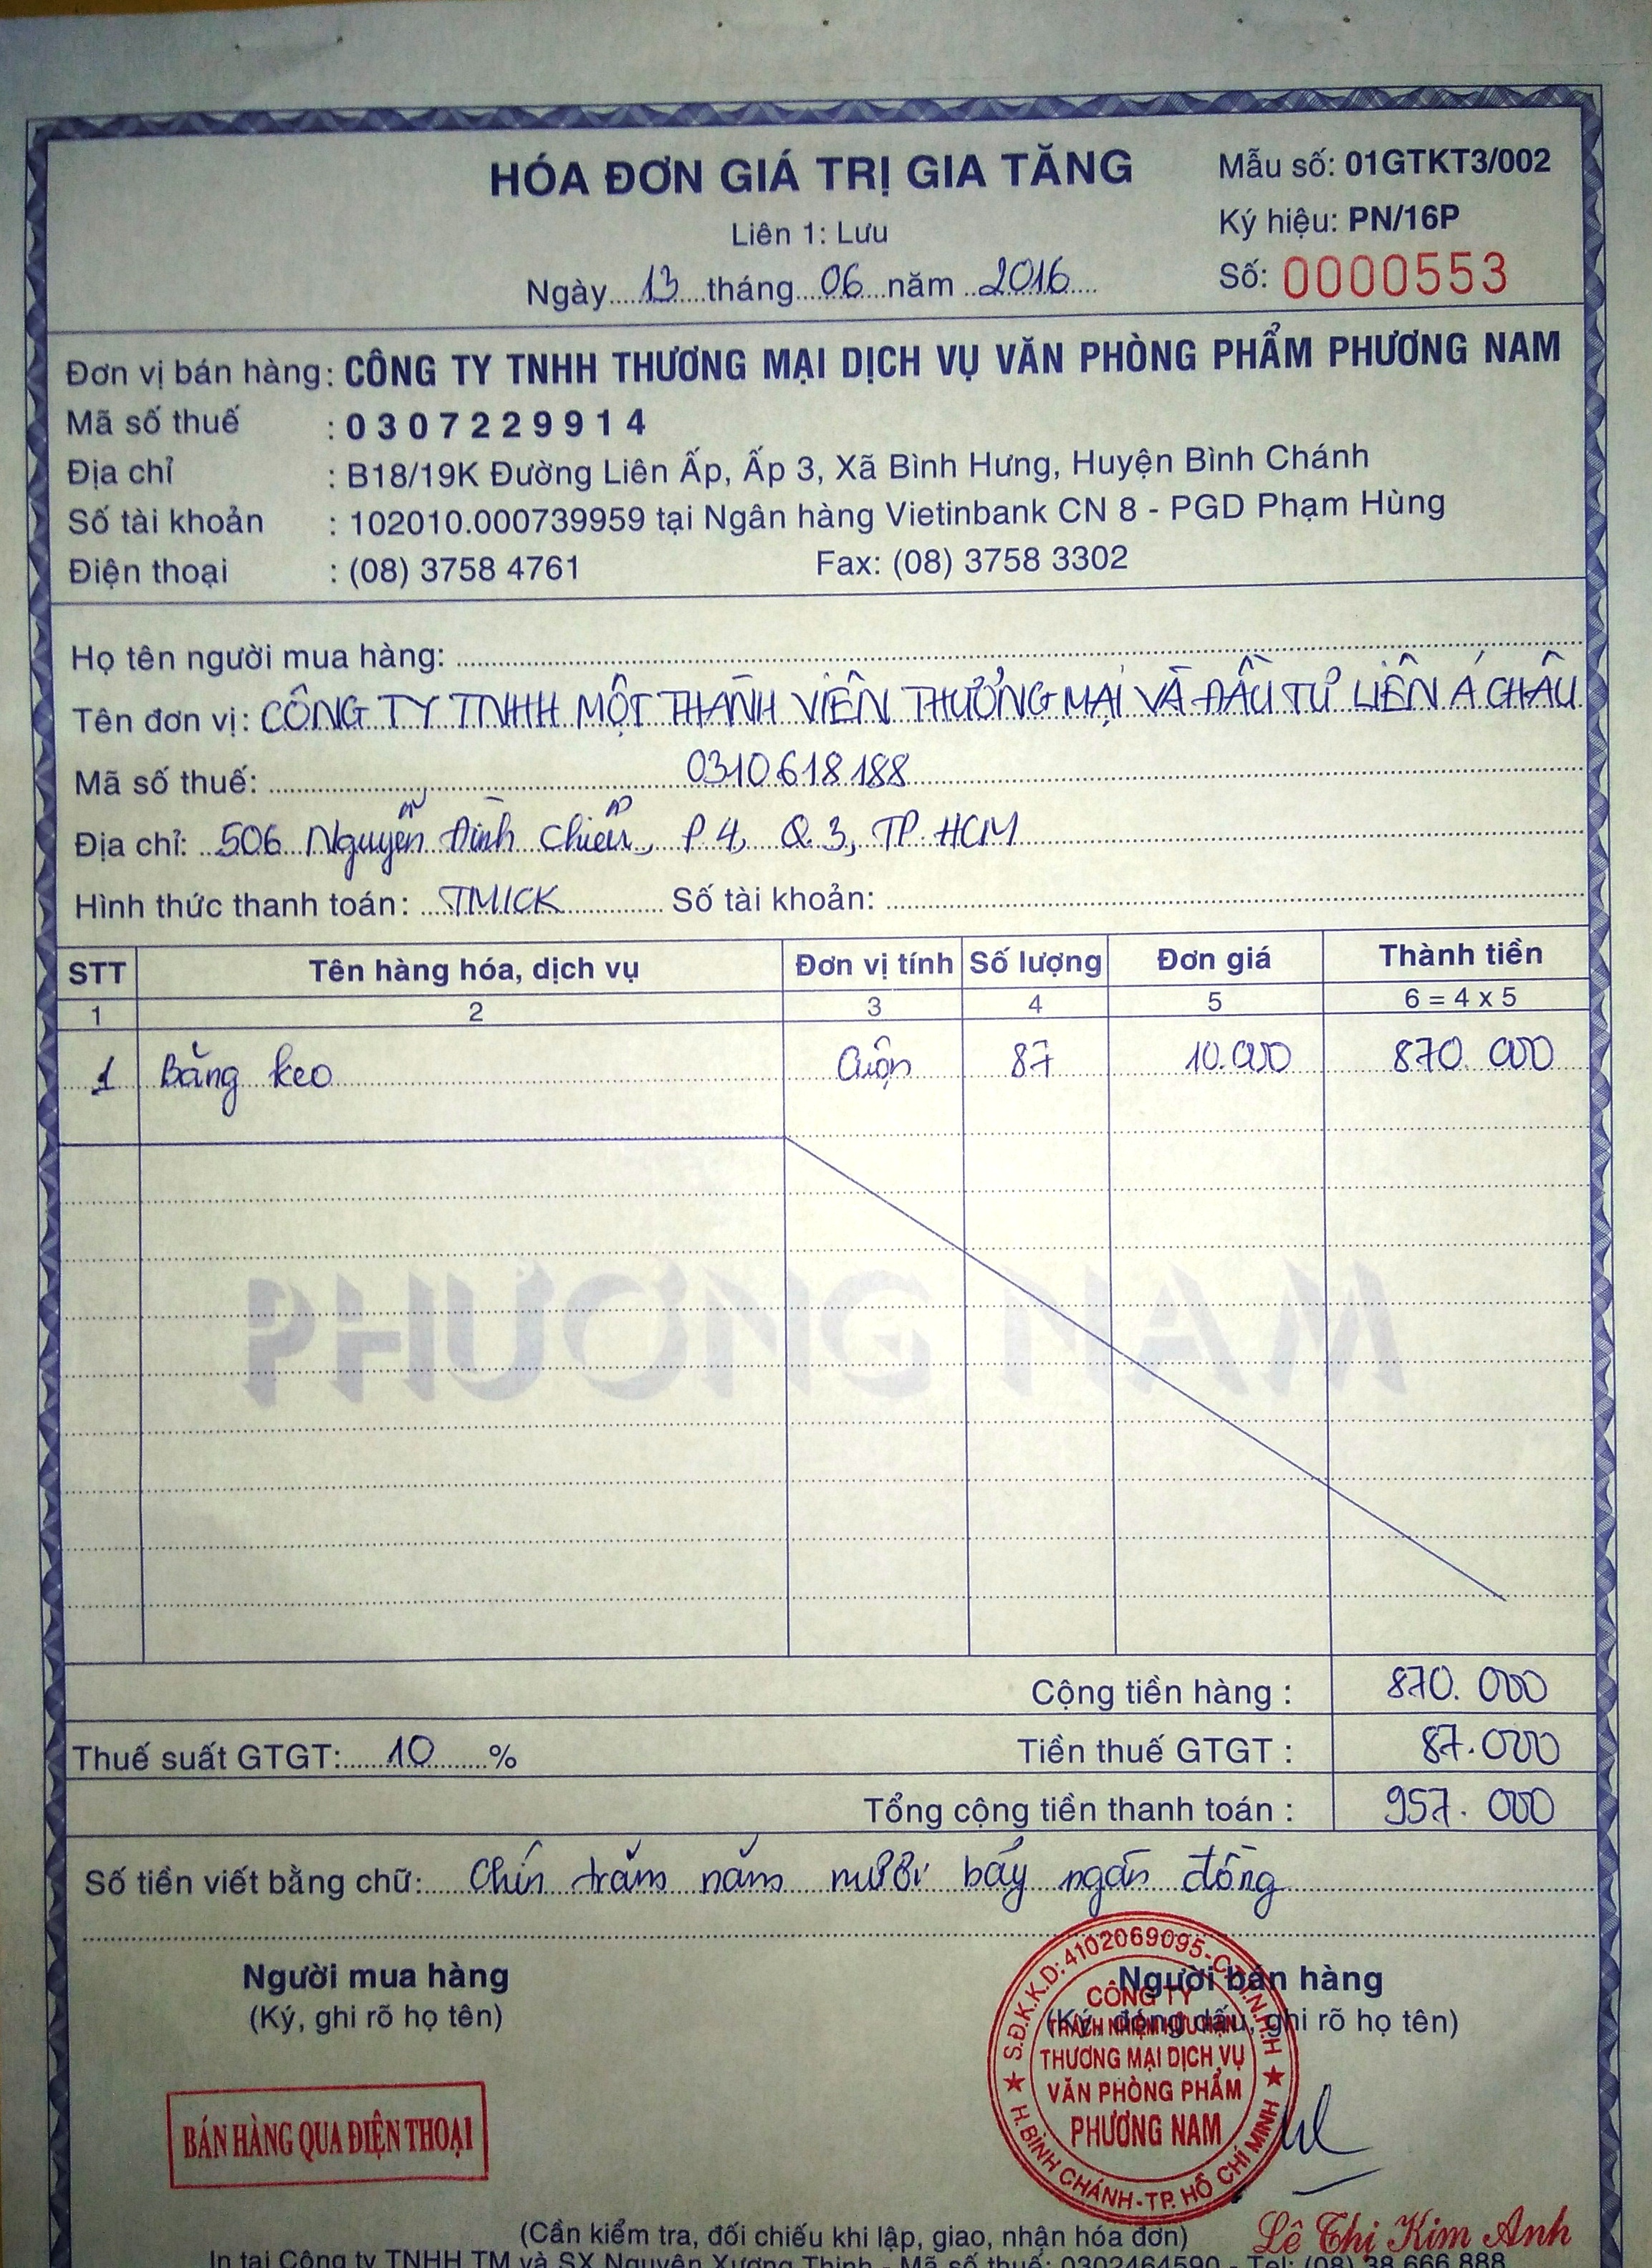 HÓA ĐƠN GIÁ TRỊ GIA TĂNG
Mẫu số: 01GTKT3/002
Liên 1: Lưu
Ký hiệu: PN/16P
Ngày 13 tháng 06 năm 2016
Số: 0000553
Đơn vị bán hàng: CÔNG TY TNHH THƯƠNG MẠI DỊCH VỤ VĂN PHÒNG PHẨM PHƯƠNG NAM
Mã số thuế : 0307229914
Địa chỉ : B18/19K Đường Liên Ấp, Ấp 3, Xã Bình Hưng, Huyện Bình Chánh
Số tài khoản : 102010.000739959 tại Ngân hàng Vietinbank CN 8 - PGD Phạm Hùng
Điện thoại : (08) 3758 4761 Fax: (08) 3758 3302
Họ tên người mua hàng:
Tên đơn vị: CÔNG TY TNHH MỘT THÀNH VIÊN THƯƠNG MẠI VÀ ĐẦU TƯ LIÊN Á CHÂU
Mã số thuế: 0310618188
Địa chỉ: 506 Nguyễn Đình Chiểu, P.4, Q.3, TP.HCM
Hình thức thanh toán: TM/CK Số tài khoản:
STT Tên hàng hóa, dịch vụ Đơn vị tính Số lượng Đơn giá Thành tiền
1 2 3 4 5 6 = 4 x 5
1 Băng keo Cuộn 87 10.000 870.000
PHƯƠNG NAM
Cộng tiền hàng : 870.000
Thuế suất GTGT: 10 % Tiền thuế GTGT : 87.000
Tổng cộng tiền thanh toán : 957.000
Số tiền viết bằng chữ: Chín trăm năm mươi bảy ngàn đồng
Người mua hàng Người bán hàng
(Ký, ghi rõ họ tên) (Ký, đóng dấu, ghi rõ họ tên)
S.Đ.K.K.D: 4102069095-C.T.T.N.H.H
CÔNG TY
TRÁCH NHIỆM HỮU HẠN
THƯƠNG MẠI DỊCH VỤ
VĂN PHÒNG PHẨM
PHƯƠNG NAM
H.BÌNH CHÁNH-TP. HỒ CHÍ MINH
BÁN HÀNG QUA ĐIỆN THOẠI
Lê Thị Kim Anh
(Cần kiểm tra, đối chiếu khi lập, giao, nhận hóa đơn)
In tại Công ty TNHH TM và SX Nguyên Xương Thịnh - Mã số thuế: 0302464590 - Tel: (08) 38 666 888